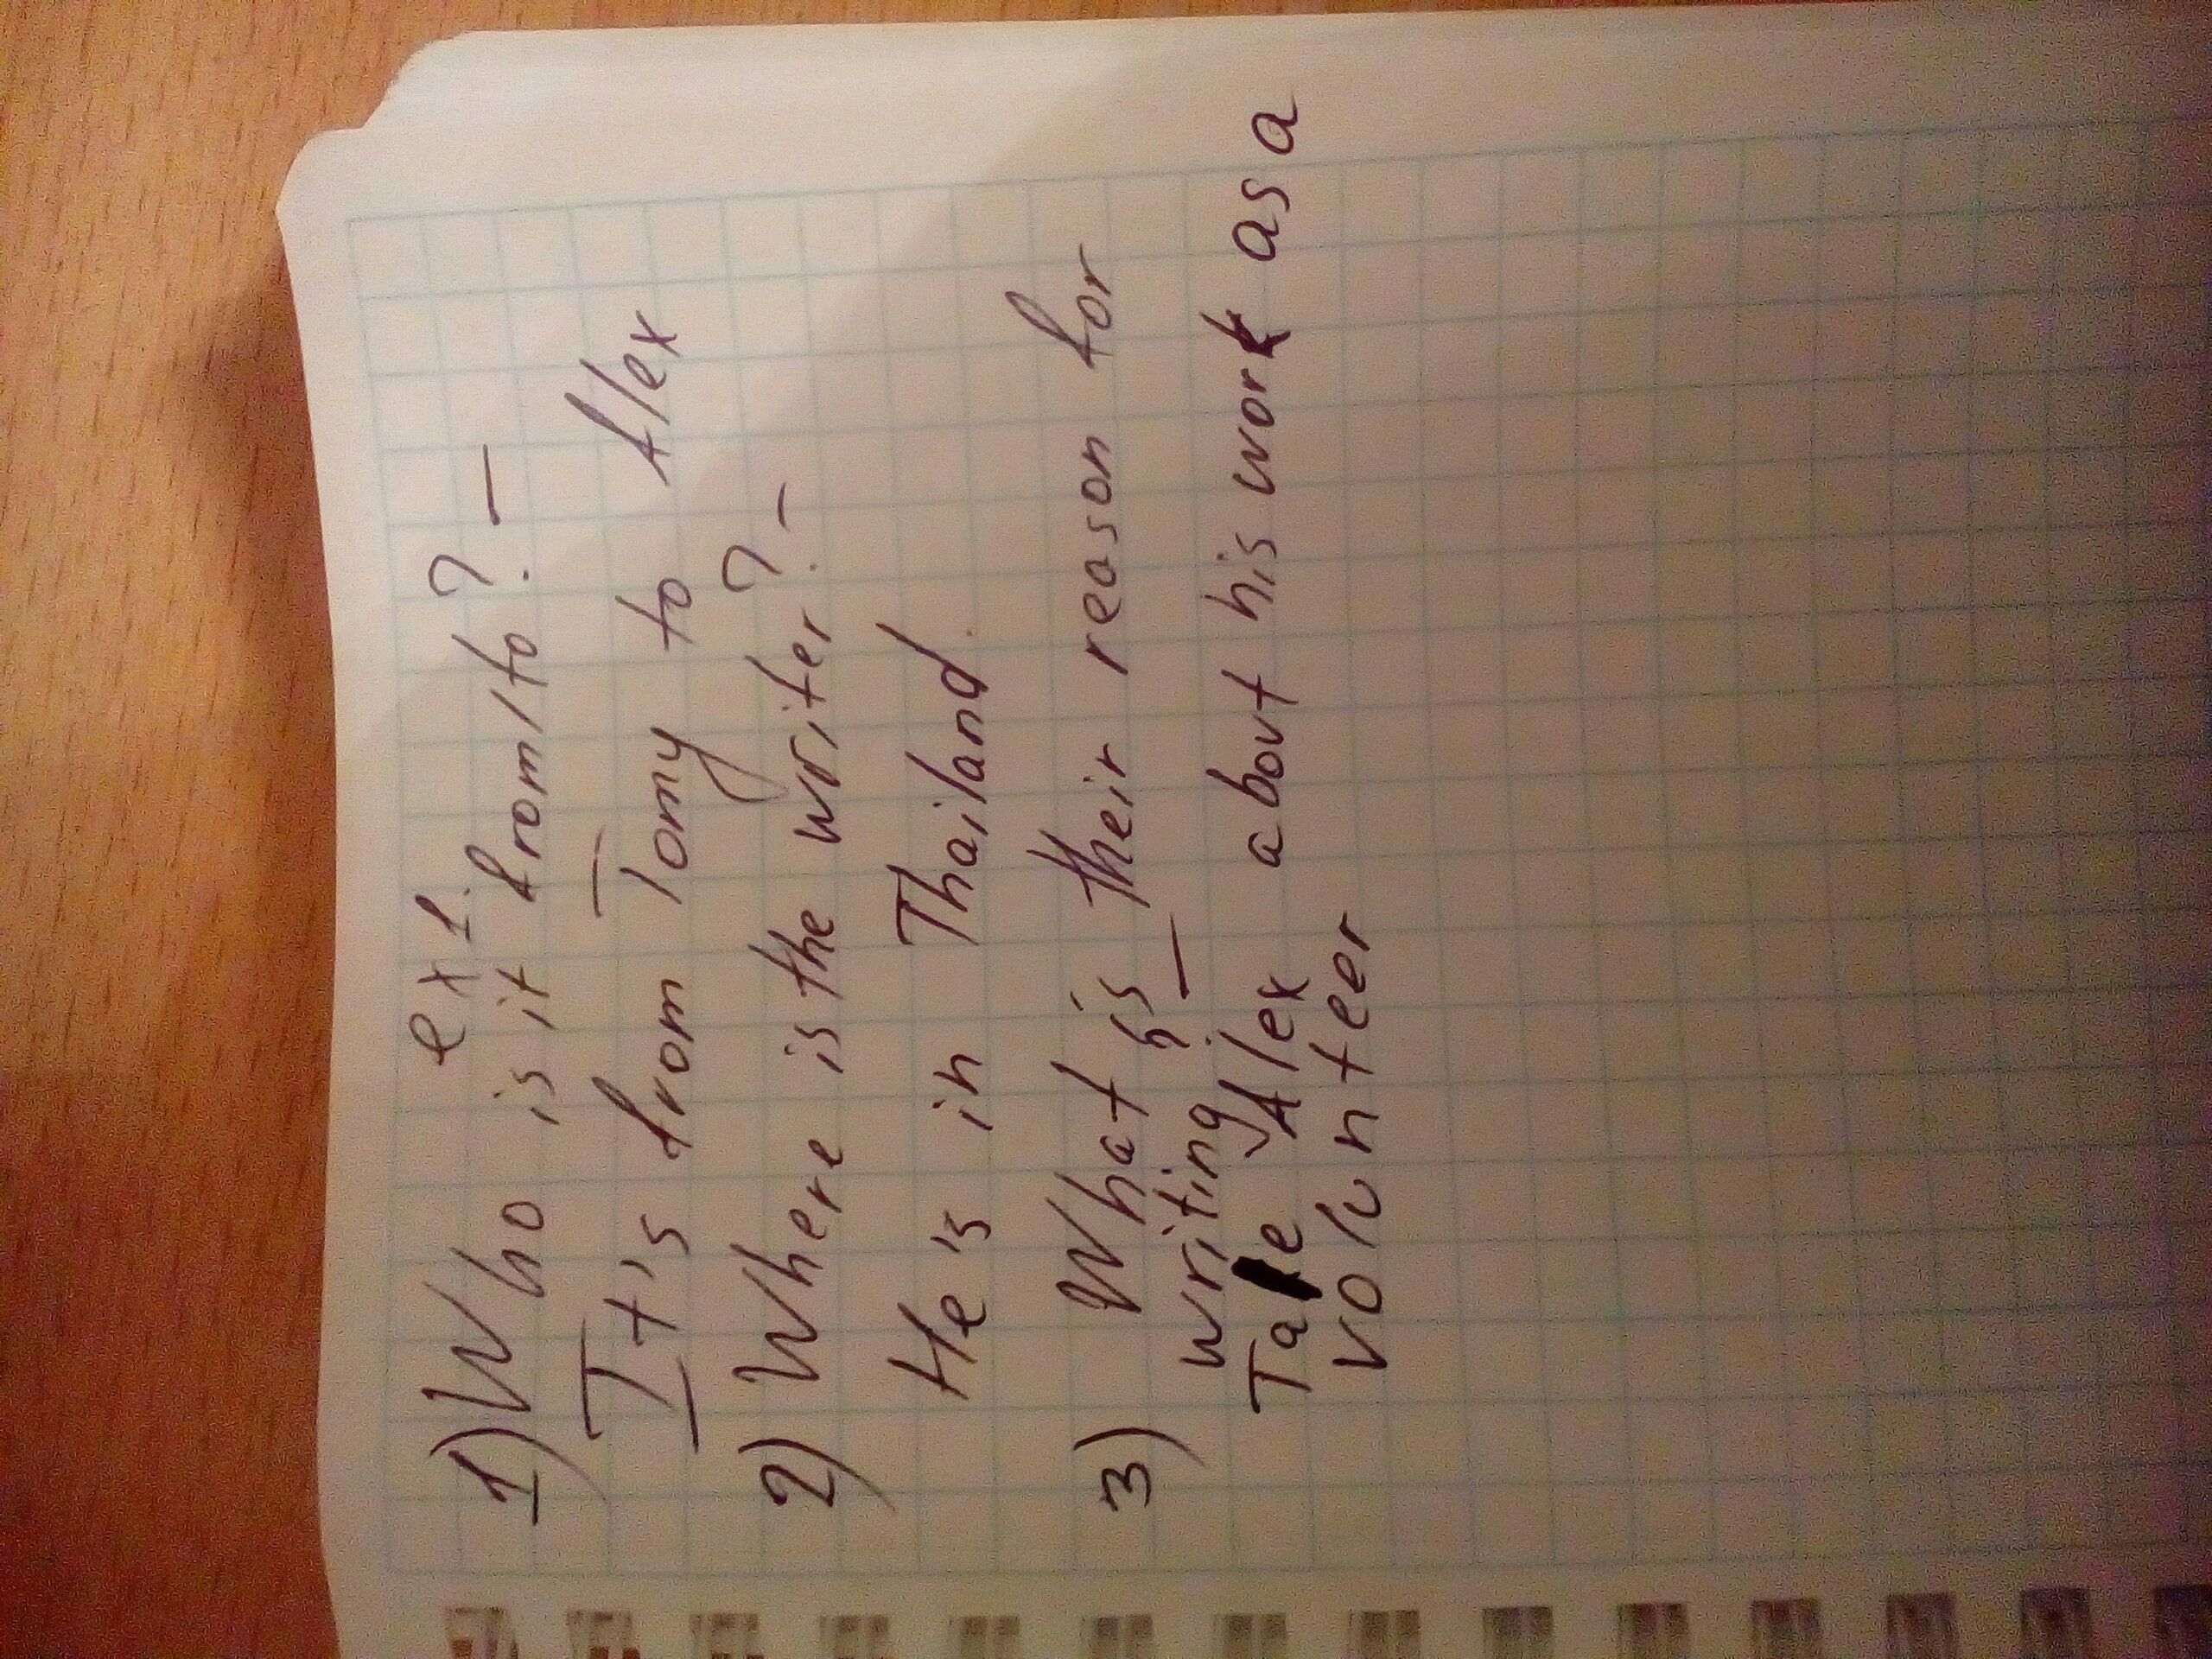 ex 1.
1) Who is it from/to? –
It's from Tomy to Alex
2) Where is the writer? –
He's in Thailand.
3) What is their reason for
writing? –
Tale Alex about his work as a
volunteer